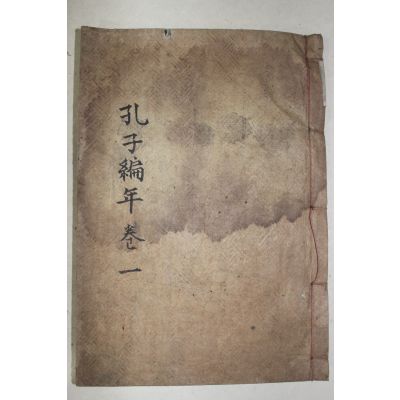 孔子編年 卷一